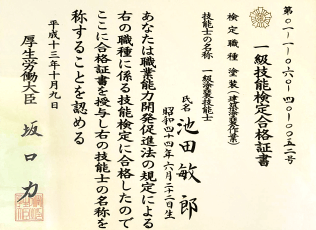 第〇一-一-〇六〇-四〇-〇〇五二号
一級技能検定合格証書
検定職種 塗装(建築塗装作業)
技能士の名称 一級塗装技能士
氏名 池田敏郎
昭和四十四年六月二十二日生
あなたは職業能力開発促進法の規定による
右の職種に係る技能検定に合格したので
ここに合格証書を授与し右の技能士の名称を
称することを認める
平成十三年十月九日
厚生労働大臣 坂口力